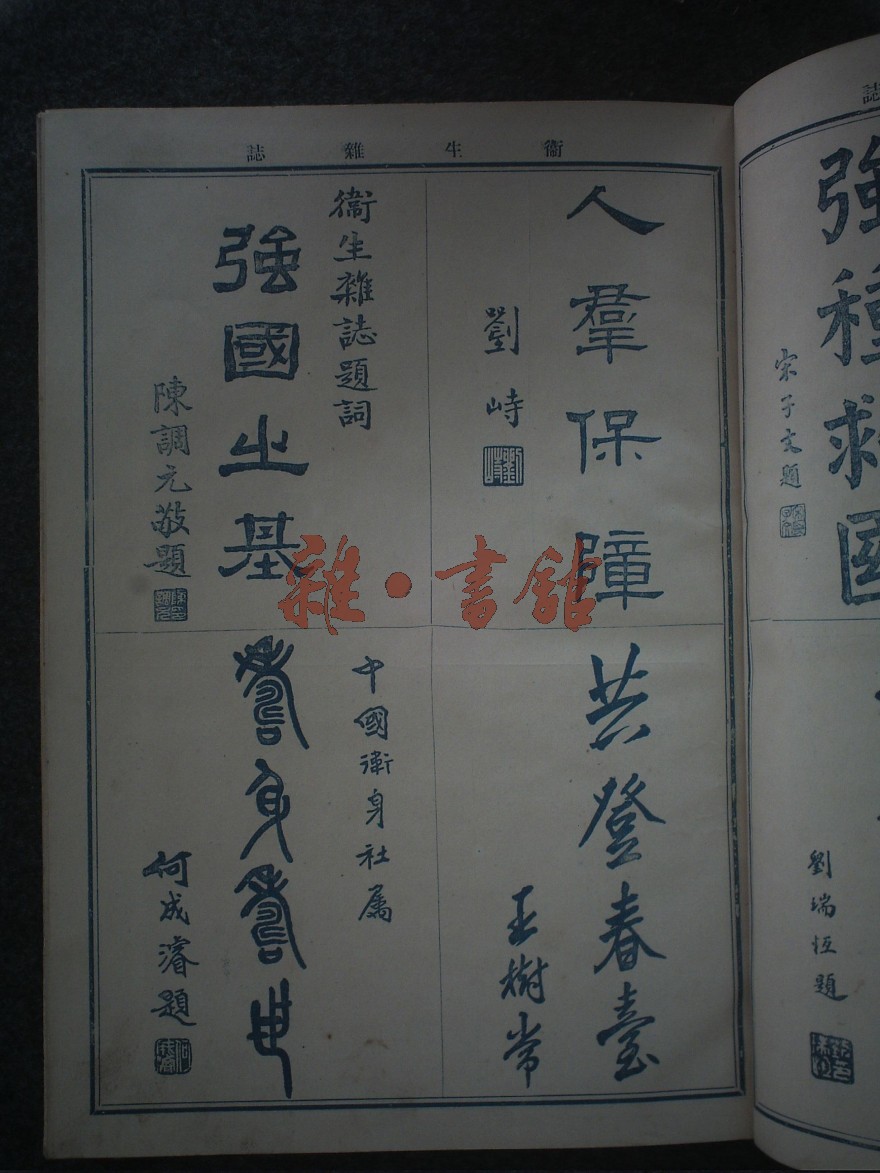 衞生雜誌
人羣保障
劉峙
劉峙
衞生雜誌題詞
強國之基
陳調元敬題
共登春臺
王樹常
中國衛身社属
壽身壽世
何成濬題
誌
強種救國
宋子文題
劉瑞恒題
雜·書館